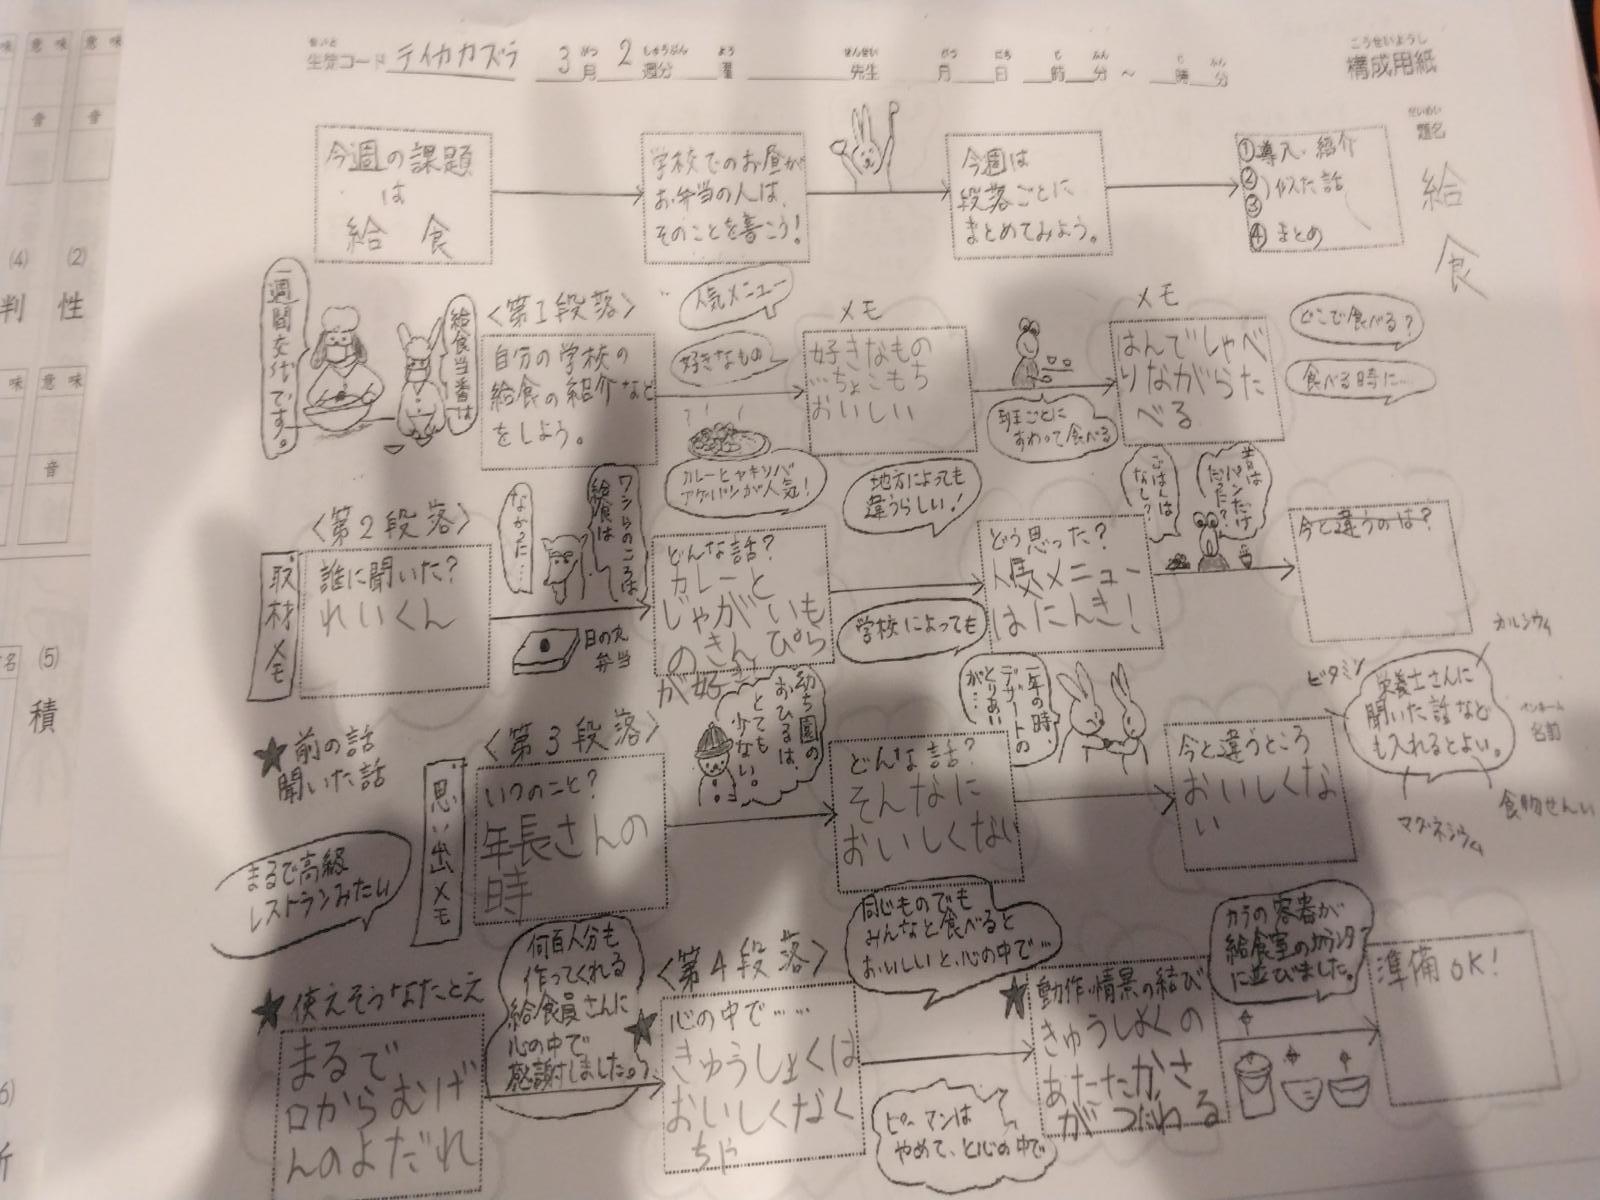 生徒コード テイカカズラ 3月 2週分 曜 先生 月 日 時 分 ～ 時 分
構成用紙
題名
給食
今週の課題
は
給食
学校でのお昼が
お弁当の人は、
そのことを書こう!
今週は
段落ごとに
まとめてみよう。
①導入・紹介
②
③
似た話
④まとめ
給食当番は
一週間交代です。
〈第1段落〉
自分の学校の
給食の紹介など
をしよう。
人気メニュー
好きなもの
カレーとヤキソバ
アゲパンが人気!
メモ
好きなもの
…ちょこもち
おいしい
班ごとに
すわって食べる
メモ
はんでしゃべ
りながらた
べる
どこで食べる?
食べる時に…
〈第2段落〉
取材メモ
誰に聞いた?
れいくん
ワシらのころは
給食は
なかった…
日の丸
弁当
どんな話?
カレーと
じゃがいも
のきんぴら
が好き
地方によっても
違うらしい!
学校によっても
どう思った?
メニュー
はにんき!
昔は
パンだけ
だった?
ごはんは
なし?
今と違うのは?
★前の話
聞いた話
〈第3段落〉
思い出メモ
いつのこと?
年長さんの
時
幼ち園の
おひるは、
とても
少ない。
どんな話?
そんなに
おいしくない
一年の時、
デザートの
とりあい
が…
今と違うところ
おいしくな
い
カルシウム
ビタミン
栄養士さんに
聞いた話など
も入れるとよい。
マグネシウム
食物せんい
ペンネーム
名前
まるで高級
レストランみたい
★使えそうなたとえ
まるで
口からむげ
んのよだれ
何百人分も
作ってくれる
給食員さんに
心の中で
感謝しました。
〈第4段落〉
★心の中で……
きゅうしょくは
おいしくなく
ちゃ
同じものでも
みんなと食べると
おいしいと、心の中で…
ピーマンは
やめて、と心の中で
★動作・情景の結び
きゅうしょくの
あたたかさ
がつたわる
カラの容器が
給食室のカウンター
に並びました。
準備OK!
(4)
(2)
判
性
意味
音
(5)
積